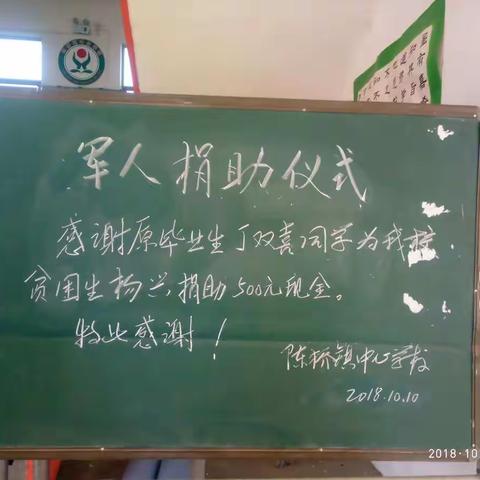 军人捐助仪式
感谢原毕业生丁双喜同学为我校
贫困生杨兴捐助500元现金。
特此感谢！
陈桥镇中心学校
2018.10.10
2018-10